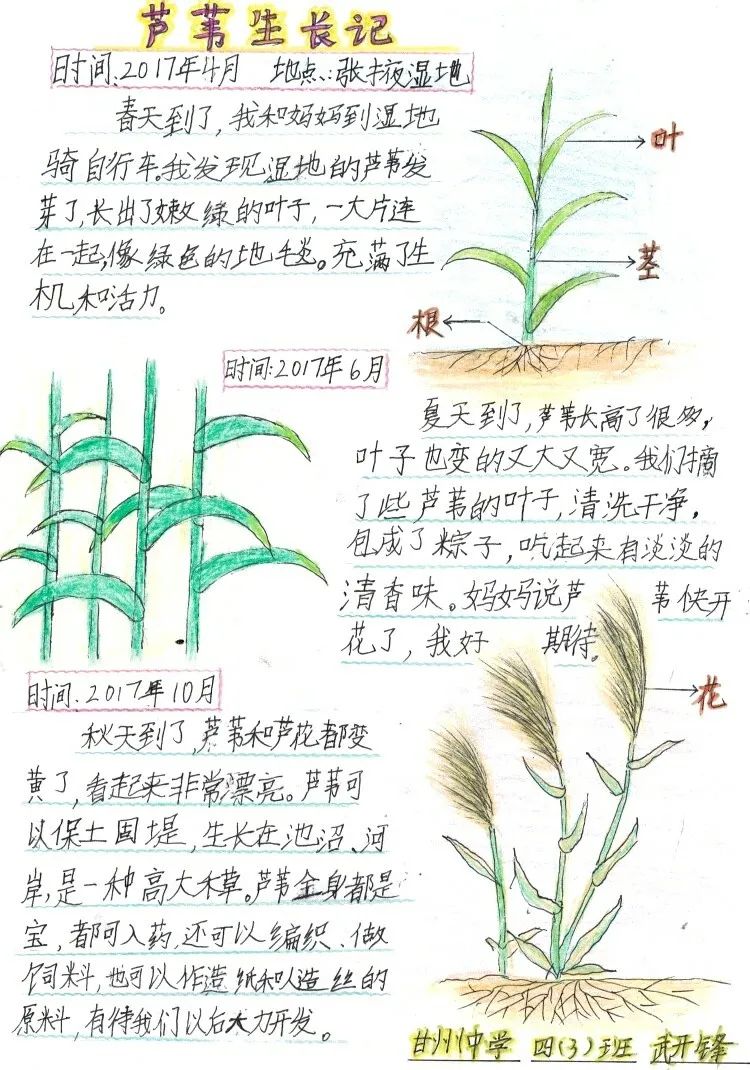 芦苇生长记
时间:2017年4月 地点:张掖湿地
春天到了,我和妈妈到湿地
骑自行车。我发现湿地的芦苇发
芽了,长出了嫩绿的叶子,一大片连
在一起,像绿色的地毯。充满了生
机和活力。
叶
茎
根
时间:2017年6月
夏天到了,芦苇长高了很多,
叶子也变的又大又宽。我们摘
了些芦苇的叶子,清洗干净,
包成了粽子,吃起来有淡淡的
清香味。妈妈说芦苇快开
花了,我好期待。
花
时间:2017年10月
秋天到了,芦苇和芦花都变
黄了,看起来非常漂亮。芦苇可
以保土固堤,生长在池沼、河
岸,是一种高大禾草。芦苇全身都是
宝,都可入药,还可以编织、做
饲料,也可以作造纸和人造丝的
原料,有待我们以后大力开发。
甘州中学 四(3)班 武开锋